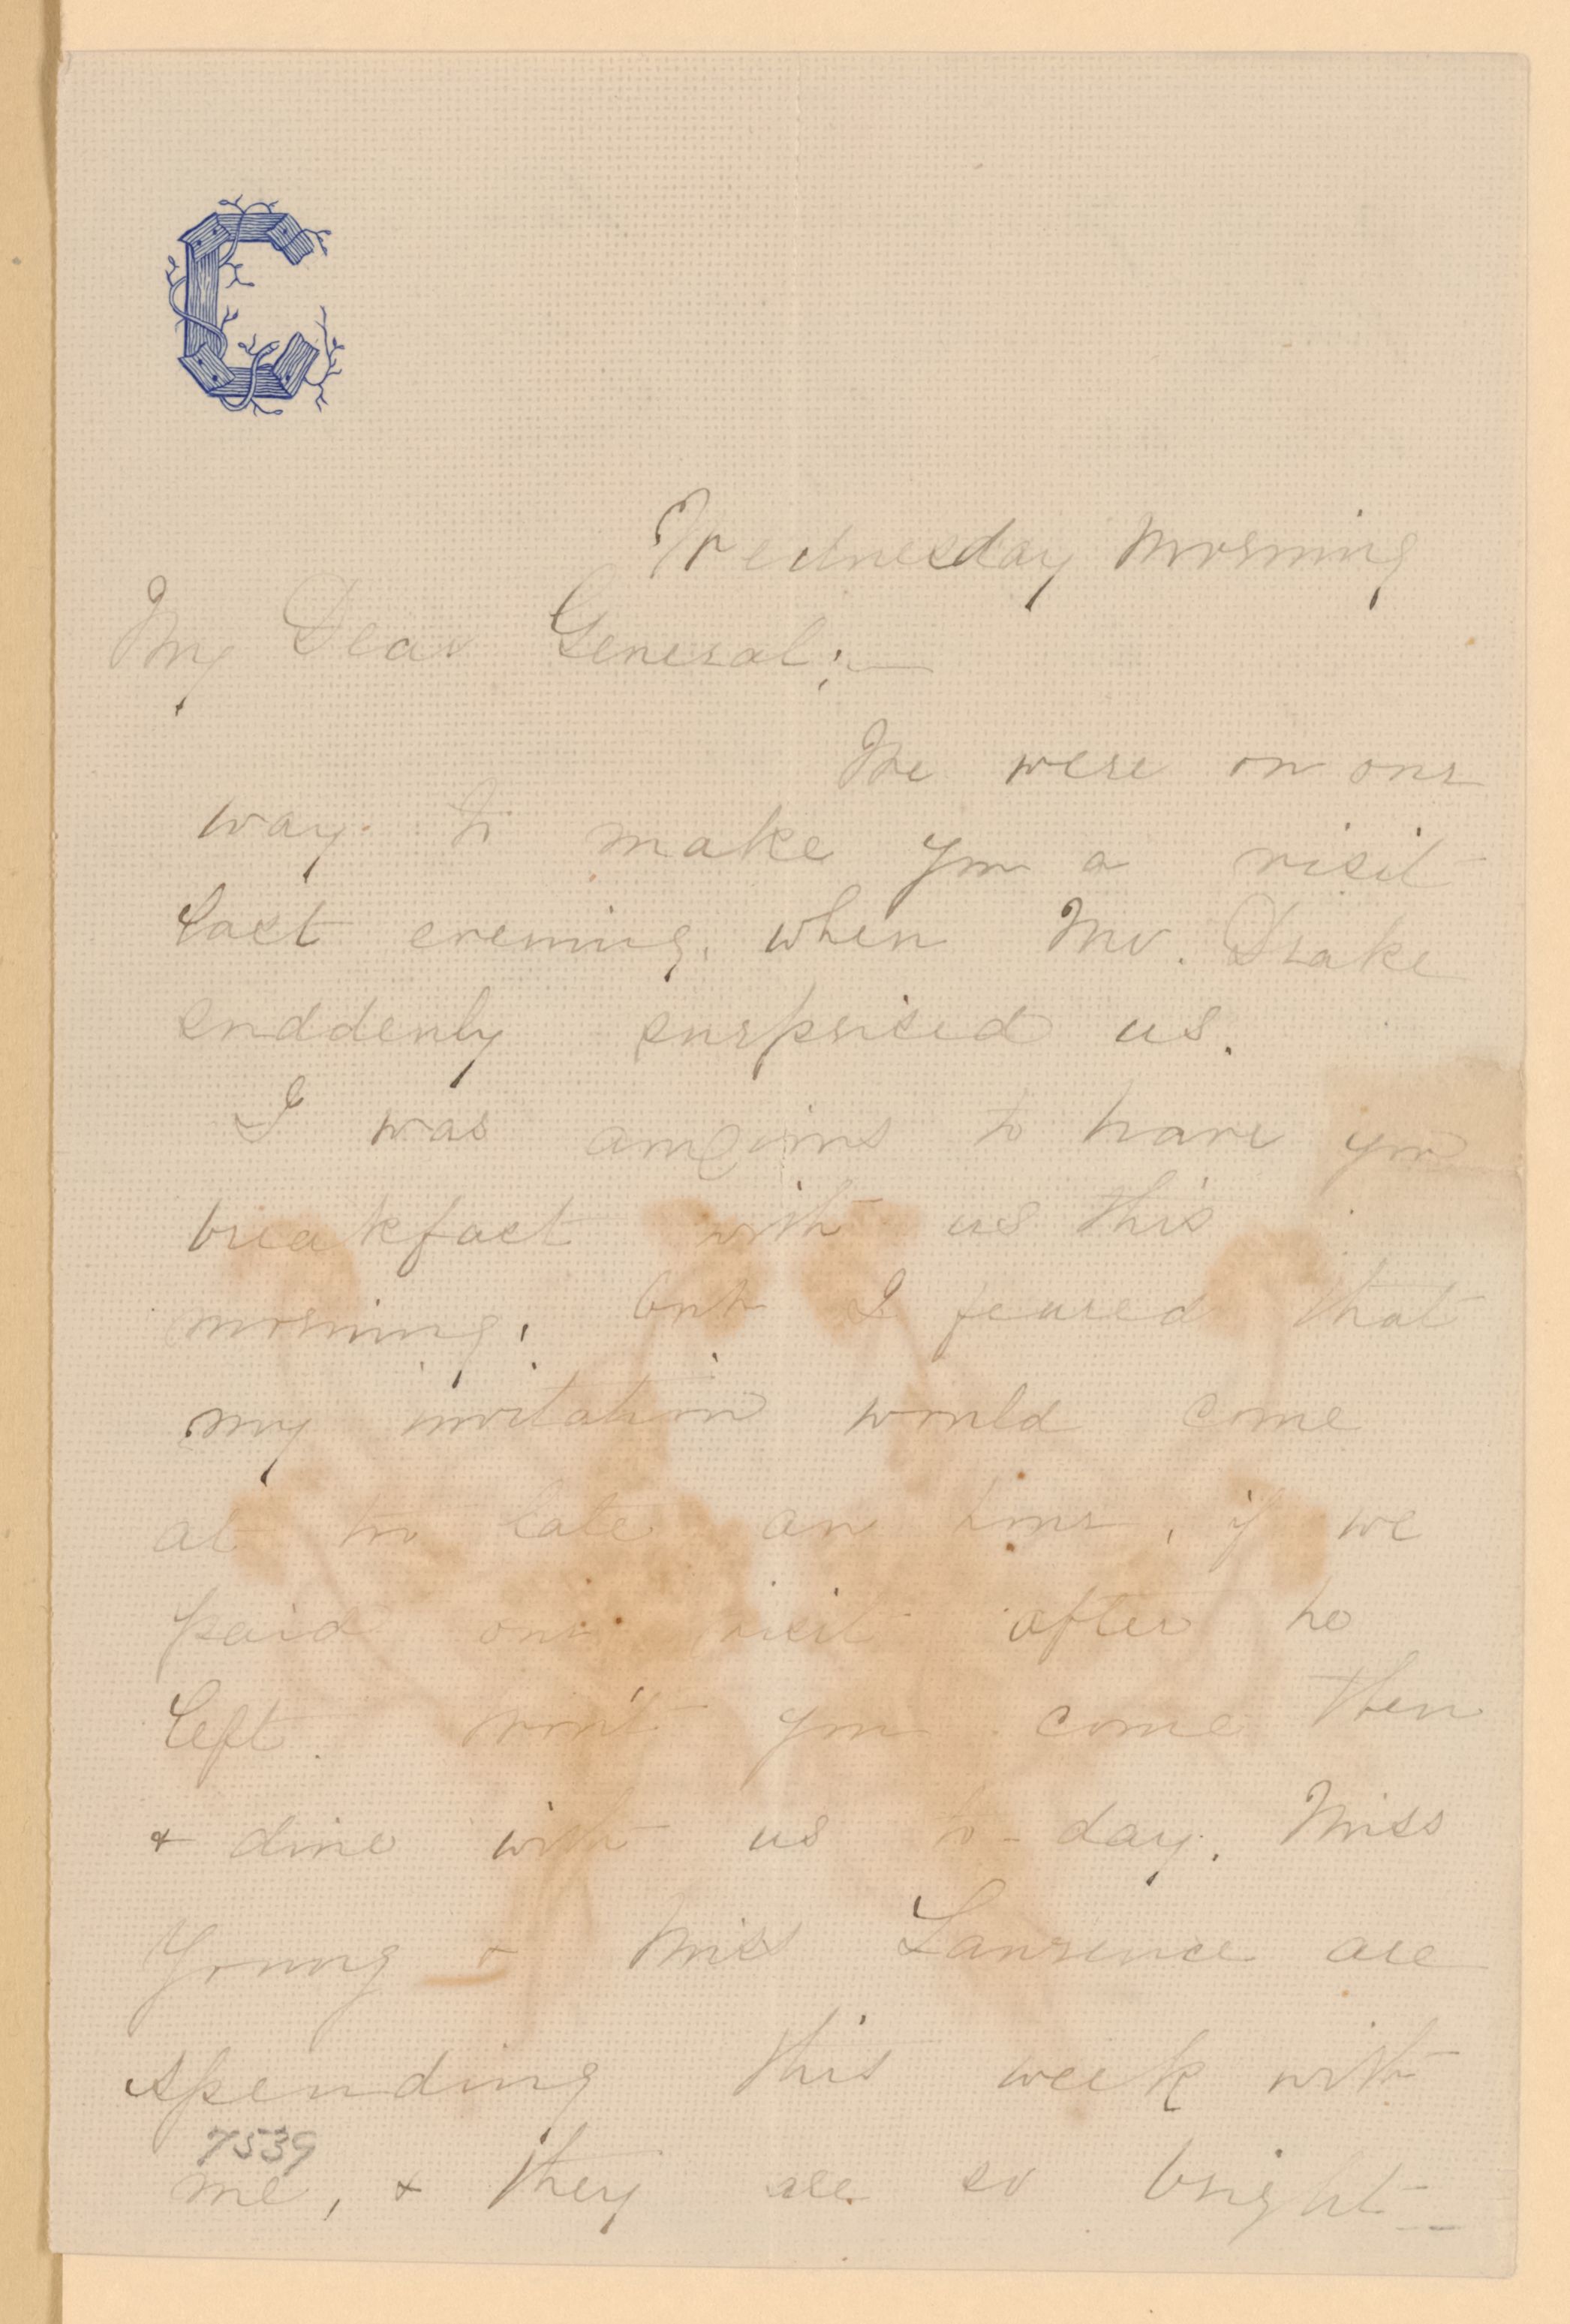 C
Wednesday Morning
My Dear General:—
We were on our
way to make you a visit
last evening, when Mr. Drake
suddenly surprised us.
I was anxious to have you
breakfast with us this
morning, but I feared that
my invitation would come
at too late an hour, if we
paid our visit after he
left. Won't you come then
& dine with us to-day. Miss
Young & Miss Lawrence are
spending this week with
7539
me, & they are so bright—